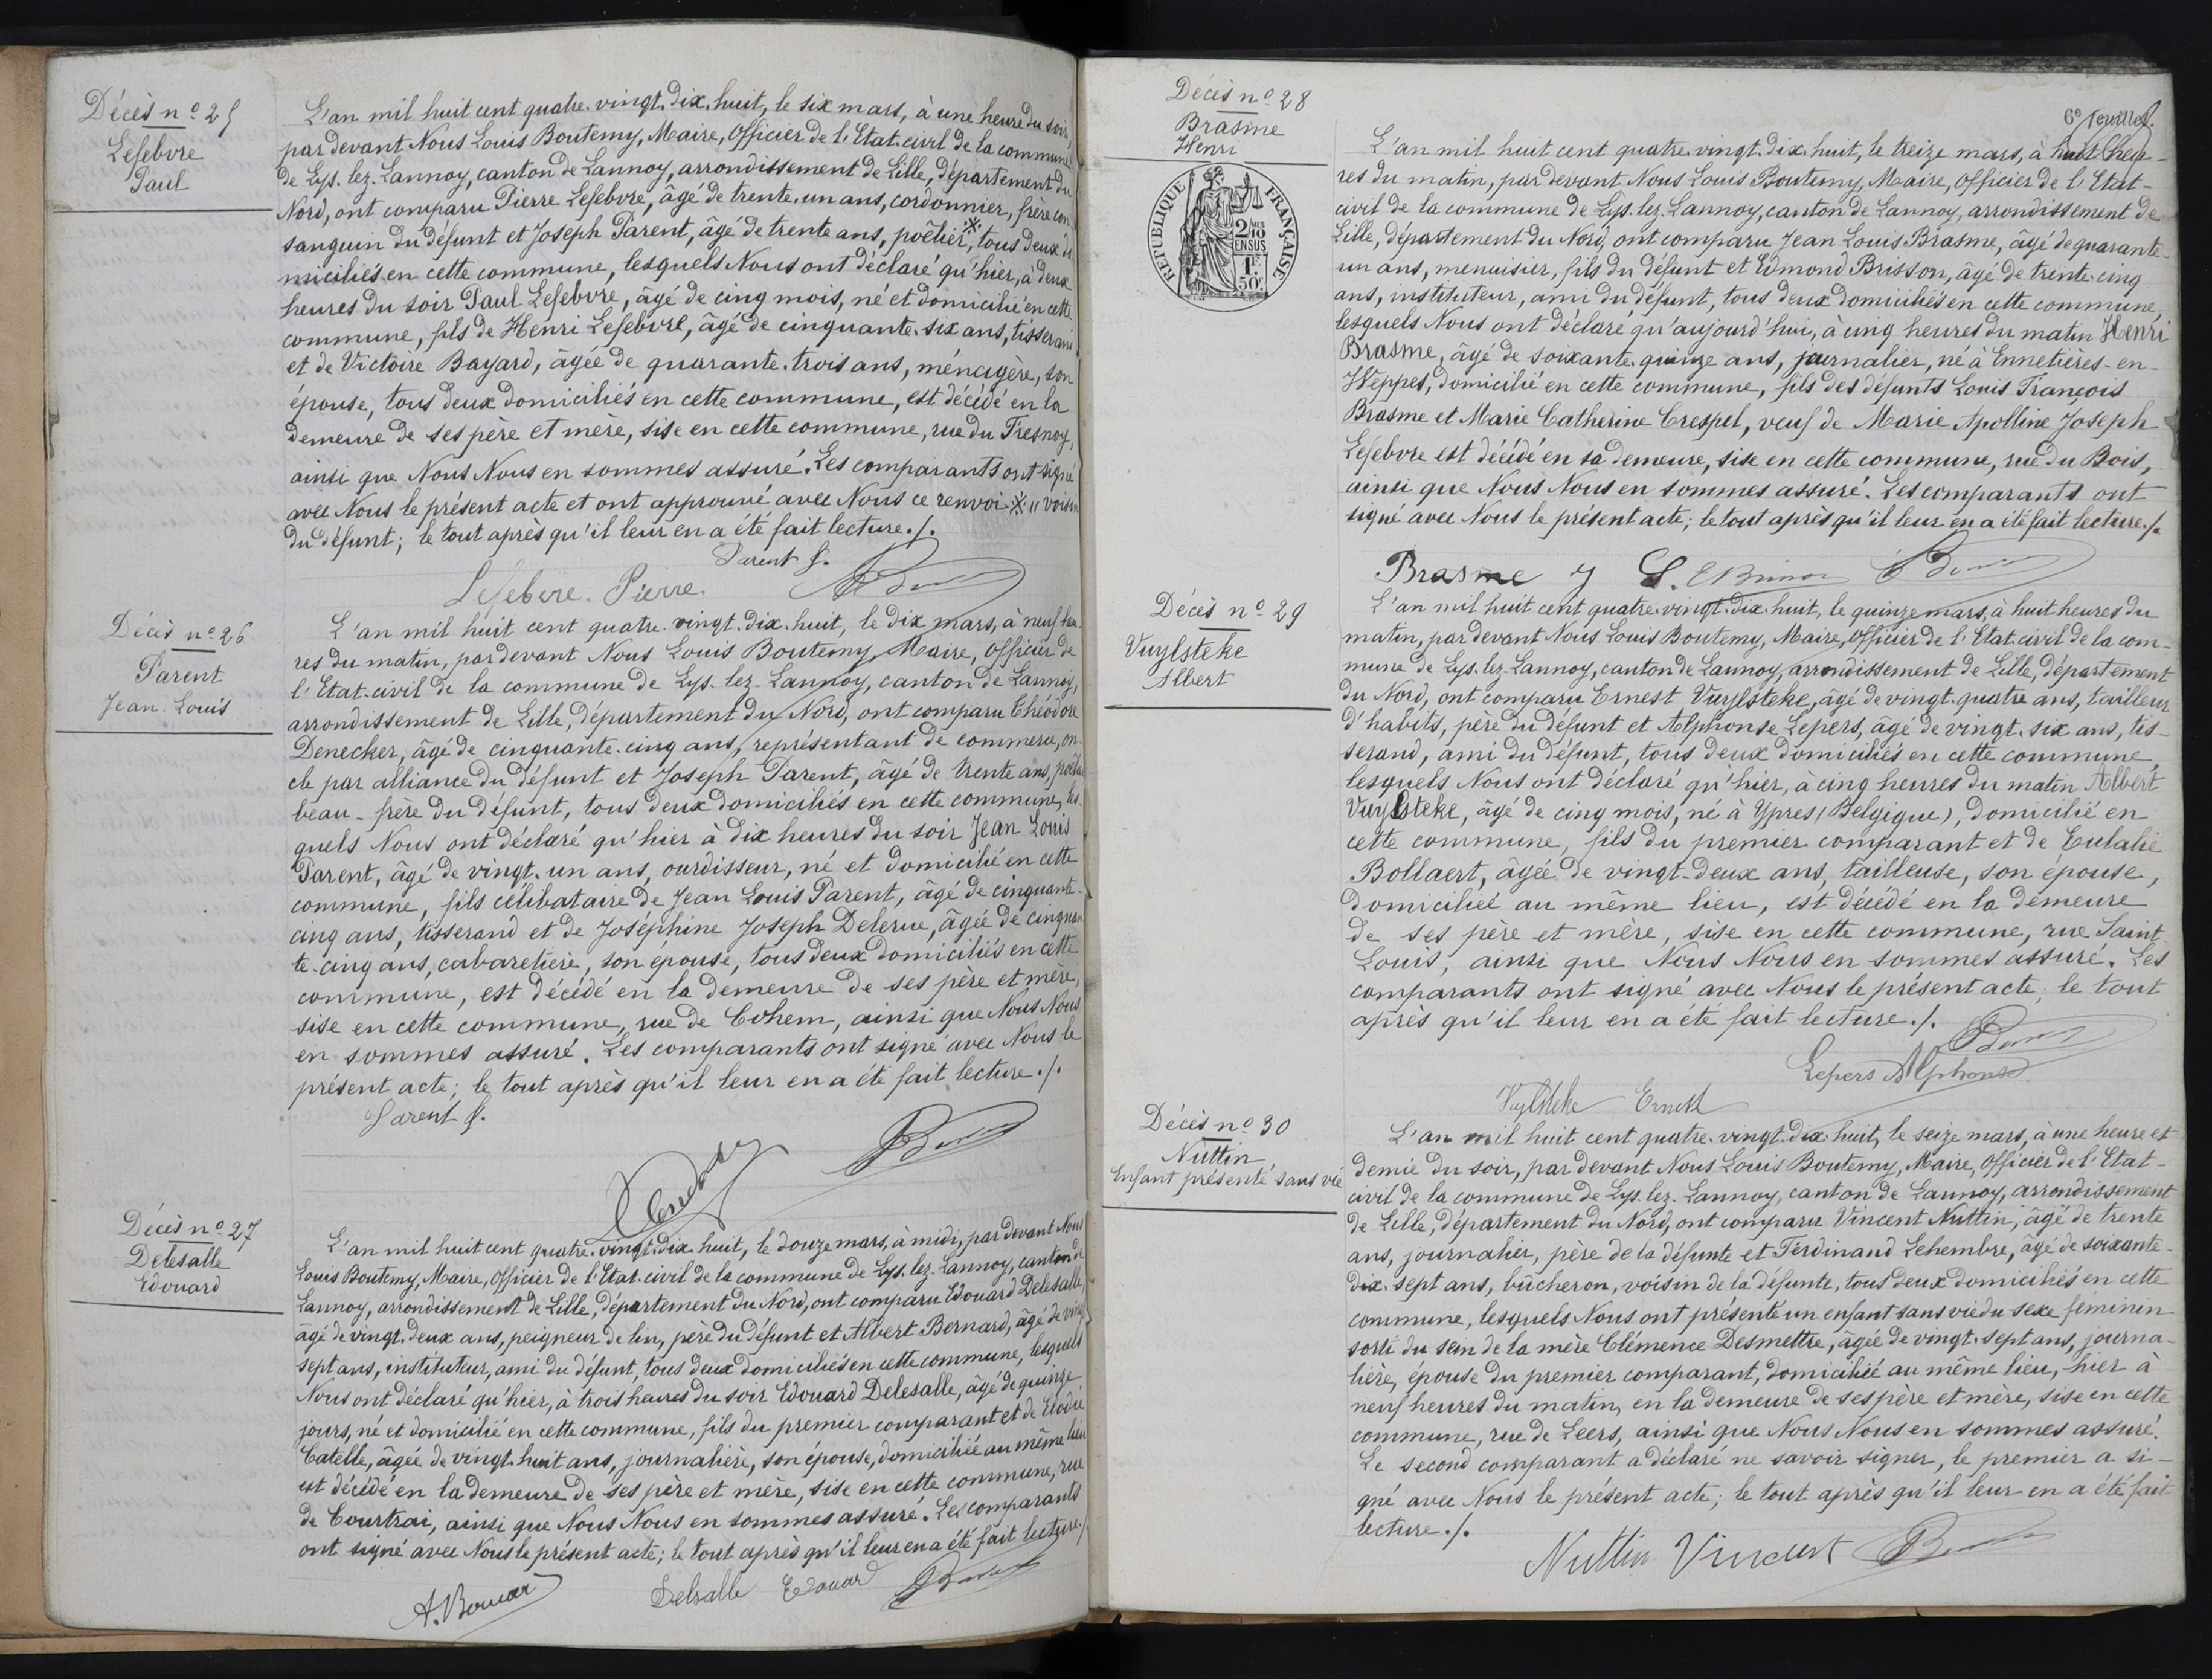 Décès nº 25
Lefebvre
Paul
L'an mil huit cent quatre-vingt-dix-huit, le six mars, à une heure du soir,
par devant Nous Louis Boutemy, Maire, Officier de l'Etat-civil de la commune
de Lys-lez-Lannoy, canton de Lannoy, arrondissement de Lille, département du
Nord, ont comparu Pierre Lefebvre, âgé de trente-un ans, cordonnier, frère con-
sanguin du défunt et Joseph Parent, âgé de trente ans, poêlier, ※ tous deux do
miciliés en cette commune, lesquels Nous ont déclaré qu'hier, à deux
heures du soir Paul Lefebvre, âgé de cinq mois, né et domicilié en cette
commune, fils de Henri Lefebvre, âgé de cinquante-six ans, tisserand
et de Victoire Bayard, âgée de quarante-trois ans, ménagère, son
épouse, tous deux domiciliés en cette commune, est décédé en la
demeure de ses père et mère, sise en cette commune, rue du Fresnoy,
ainsi que Nous Nous en sommes assuré. Les comparants ont signé
avec Nous le présent acte et ont approuvé avec Nous ce renvoi ※ " voisin
du défunt; le tout après qu'il leur en a été fait lecture./.
Parent J.
Lefebvre Pierre
Décès nº 26
Parent
Jean-Louis
L'an mil huit cent quatre-vingt-dix-huit, le dix mars, à neuf heu-
res du matin, par devant Nous Louis Boutemy, Maire, Officier de
l'Etat-civil de la commune de Lys-lez-Lannoy, canton de Lannoy,
arrondissement de Lille, département du Nord, ont comparu Théodore
Denecker, âgé de cinquante-cinq ans, représentant de commerce, on-
cle par alliance du défunt et Joseph Parent, âgé de trente ans, poêlier
beau-frère du défunt, tous deux domiciliés en cette commune, les-
quels Nous ont déclaré qu'hier à dix heures du soir Jean Louis
Parent, âgé de vingt-un ans, ourdisseur, né et domicilié en cette
commune, fils célibataire de Jean Louis Parent, âgé de cinquante-
cinq ans, tisserand et de Joséphine Joseph Delerue, âgée de cinquan
te-cinq ans, cabaretière, son épouse, tous deux domiciliés en cette
commune, est décédé en la demeure de ses père et mère,
sise en cette commune, rue de Cohem, ainsi que Nous Nous
en sommes assuré. Les comparants ont signé avec Nous le
présent acte; le tout après qu'il leur en a été fait lecture./.
Parent J.
Décès nº 27
Delesalle
Edouard
L'an mil huit cent quatre-vingt-dix-huit, le douze mars, à midi, par devant Nous
Louis Boutemy, Maire, Officier de l'Etat-civil de la commune de Lys-lez-Lannoy, canton de
Lannoy, arrondissement de Lille, département du Nord, ont comparu Edouard Delesalle,
âgé de vingt-deux ans, peigneur de lin, père du défunt et Albert Bernard, âgé de vingt
sept ans, instituteur, ami du défunt, tous deux domiciliés en cette commune, lesquels
Nous ont déclaré qu'hier, à trois heures du soir Edouard Delesalle, âgé de quinze
jours, né et domicilié en cette commune, fils du premier comparant et de Elodie
Catelle, âgée de vingt-huit ans, journalière, son épouse, domiciliée au même lieu
est décédé en la demeure de ses père et mère, sise en cette commune, rue
de Courtrai, ainsi que Nous Nous en sommes assuré. Les comparants
ont signé avec Nous le présent acte; le tout après qu'il leur en a été fait lecture./.
Delsalle Edouard
Décès nº 28
Brasme
Henri
RÉPUBLIQUE FRANÇAISE
2/10
EN SUS
1F
50c
6e Feuillet.
L'an mil huit cent quatre-vingt-dix-huit, le treize mars, à huit heu-
res du matin, par devant Nous Louis Boutemy, Maire, Officier de l'Etat-
civil de la commune de Lys-lez-Lannoy, canton de Lannoy, arrondissement de
Lille, département du Nord, ont comparu Jean Louis Brasme, âgé de quarante-
un ans, menuisier, fils du défunt et Edmond Brisson, âgé de trente-cinq
ans, instituteur, ami du défunt, tous deux domiciliés en cette commune,
lesquels Nous ont déclaré qu'aujourd'hui, à cinq heures du matin Henri
Brasme, âgé de soixante-quinze ans, journalier, né à Ennetières-en-
Weppes, domicilié en cette commune, fils des défunts Louis François
Brasme et Marie Catherine Crespel, veuf de Marie Apolline Joseph
Lefebvre est décédé en sa demeure, sise en cette commune, rue du Bois,
ainsi que Nous Nous en sommes assuré. Les comparants ont
signé avec Nous le présent acte; le tout après qu'il leur en a été fait lecture./.
Brasme J L. E Brisson
Décès nº 29
Vuylsteke
Albert
L'an mil huit cent quatre-vingt-dix-huit, le quinze mars, à huit heures du
matin, par devant Nous Louis Boutemy, Maire, Officier de l'Etat-civil de la com-
mune de Lys-lez-Lannoy, canton de Lannoy, arrondissement de Lille, département
du Nord, ont comparu Ernest Vuylsteke, âgé de vingt-quatre ans, tailleur
d'habits, père du défunt et Alphonse Lepers, âgé de vingt-six ans, tis-
serand, ami du défunt, tous deux domiciliés en cette commune,
lesquels Nous ont déclaré qu'hier, à cinq heures du matin Albert
Vuylsteke, âgé de cinq mois, né à Ypres (Belgique), domicilié en
cette commune, fils du premier comparant et de Eulalie
Bollaert, âgée de vingt-deux ans, tailleuse, son épouse,
domiciliée au même lieu, est décédé en la demeure
de ses père et mère, sise en cette commune, rue Saint
Louis, ainsi que Nous Nous en sommes assuré. Les
comparants ont signé avec Nous le présent acte, le tout
après qu'il leur en a été fait lecture./.
Lepers Alphonse
Vuylsteke Ernest
Décès nº 30
Nuttin
Enfant présenté sans vie
L'an mil huit cent quatre-vingt-dix-huit, le seize mars, à une heure et
demie du soir, par devant Nous Louis Boutemy, Maire, Officier de l'Etat-
civil de la commune de Lys-lez-Lannoy, canton de Lannoy, arrondissement
de Lille, département du Nord, ont comparu Vincent Nuttin, âgé de trente
ans, journalier, père de la défunte et Ferdinand Lehembre, âgé de soixante-
dix-sept ans, bûcheron, voisin de la défunte, tous deux domiciliés en cette
commune, lesquels Nous ont présenté un enfant sans vie du sexe féminin
sorti du sein de la mère Clémence Desmettre, âgée de vingt-sept ans, journa-
lière, épouse du premier comparant, domiciliée au même lieu, hier à
neuf heures du matin, en la demeure de ses père et mère, sise en cette
commune, rue de Leers, ainsi que Nous Nous en sommes assuré.
Le second comparant a déclaré ne savoir signer, le premier a si-
gné avec Nous le présent acte; le tout après qu'il leur en a été fait
lecture./.
Nuttin Vincent